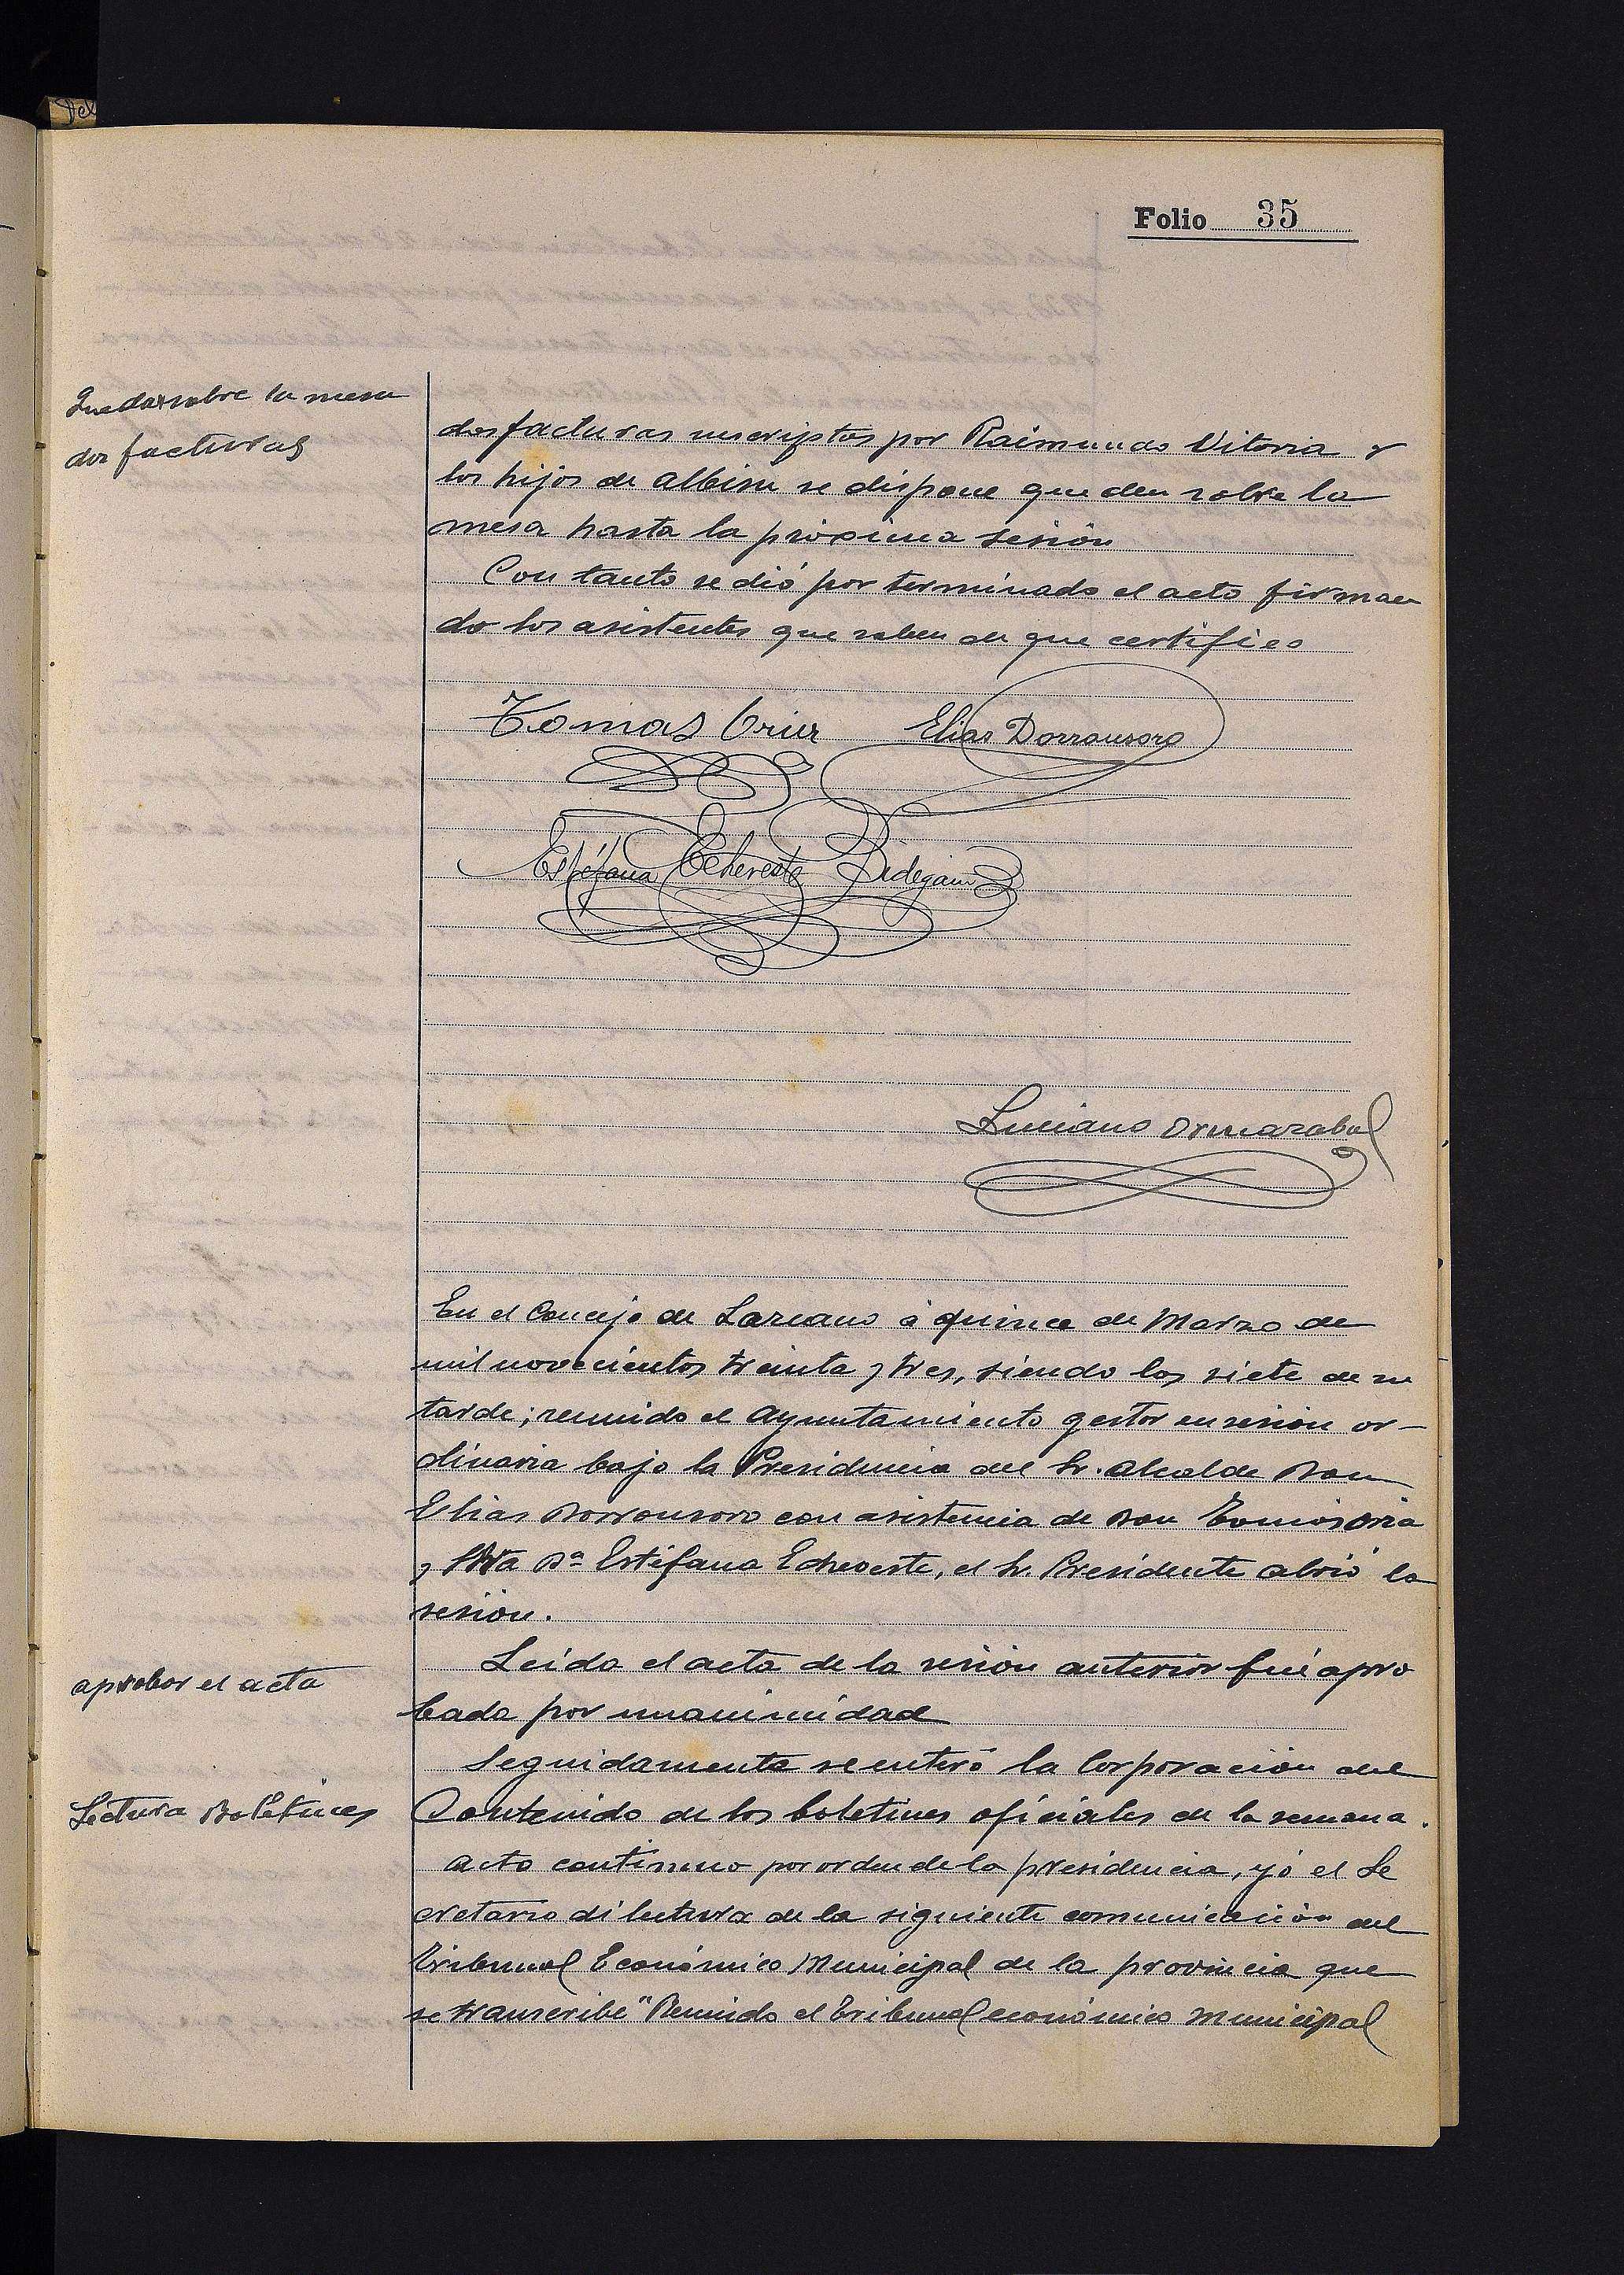 Folio 35
Quedar sobre la mesa
dos facturas
dos facturas suscriptas por Raimundo Vitoria y
los hijos de Albisu se dispone queden sobre la
mesa hasta la próxima sesión
Con tanto se dió por terminado el acto firman
do los asistentes que saben de que certifico
Tomas Oria Elias Dorronsoro
Estéfana Echeveste Bidegain
Luciano Ormazabal
En el Concejo de Lazcano á quince de Marzo de
mil novecientos treinta y tres, siendo las siete de su
tarde; reunido el Ayuntamiento gestor en sesión or-
dinaria bajo la Presidencia del Sr. Alcalde Don
Elias Dorronsoro con asistencia de Don Tomás Oria
y Srta Dª Estéfana Echeveste, el Sr. Presidente abrió la
sesión.
aprobar el acta
Leida el acta de la sesión anterior fué apro
bada por unanimidad
Seguidamente se enteró la Corporación del
Lectura Boletines
Contenido de los boletines oficiales de la semana.
Acto continuo por orden de la presidencia, yó el Se
cretario dí lectura de la siguiente comunicación del
Tribunal Económico Municipal de la provincia que
se transcribe "Reunido el Tribunal económico municipal